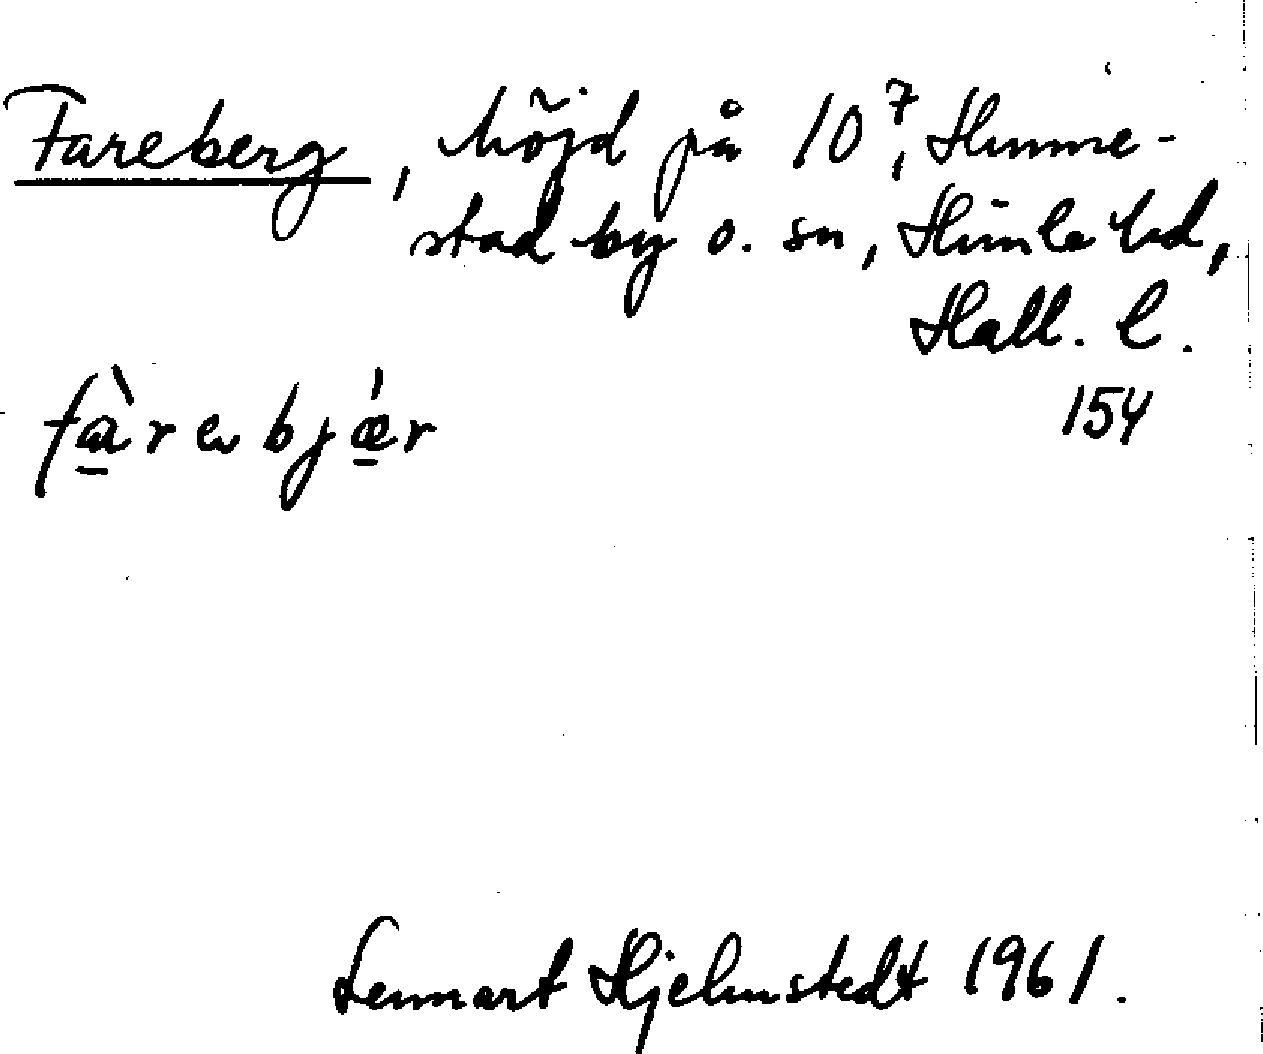 Fareberg, höjd på 10⁷, Hunne-
stad by o. sn, Himle hd,
Hall. l.
154
fàrəbjǽr
Lennart Hjelmstedt 1961.